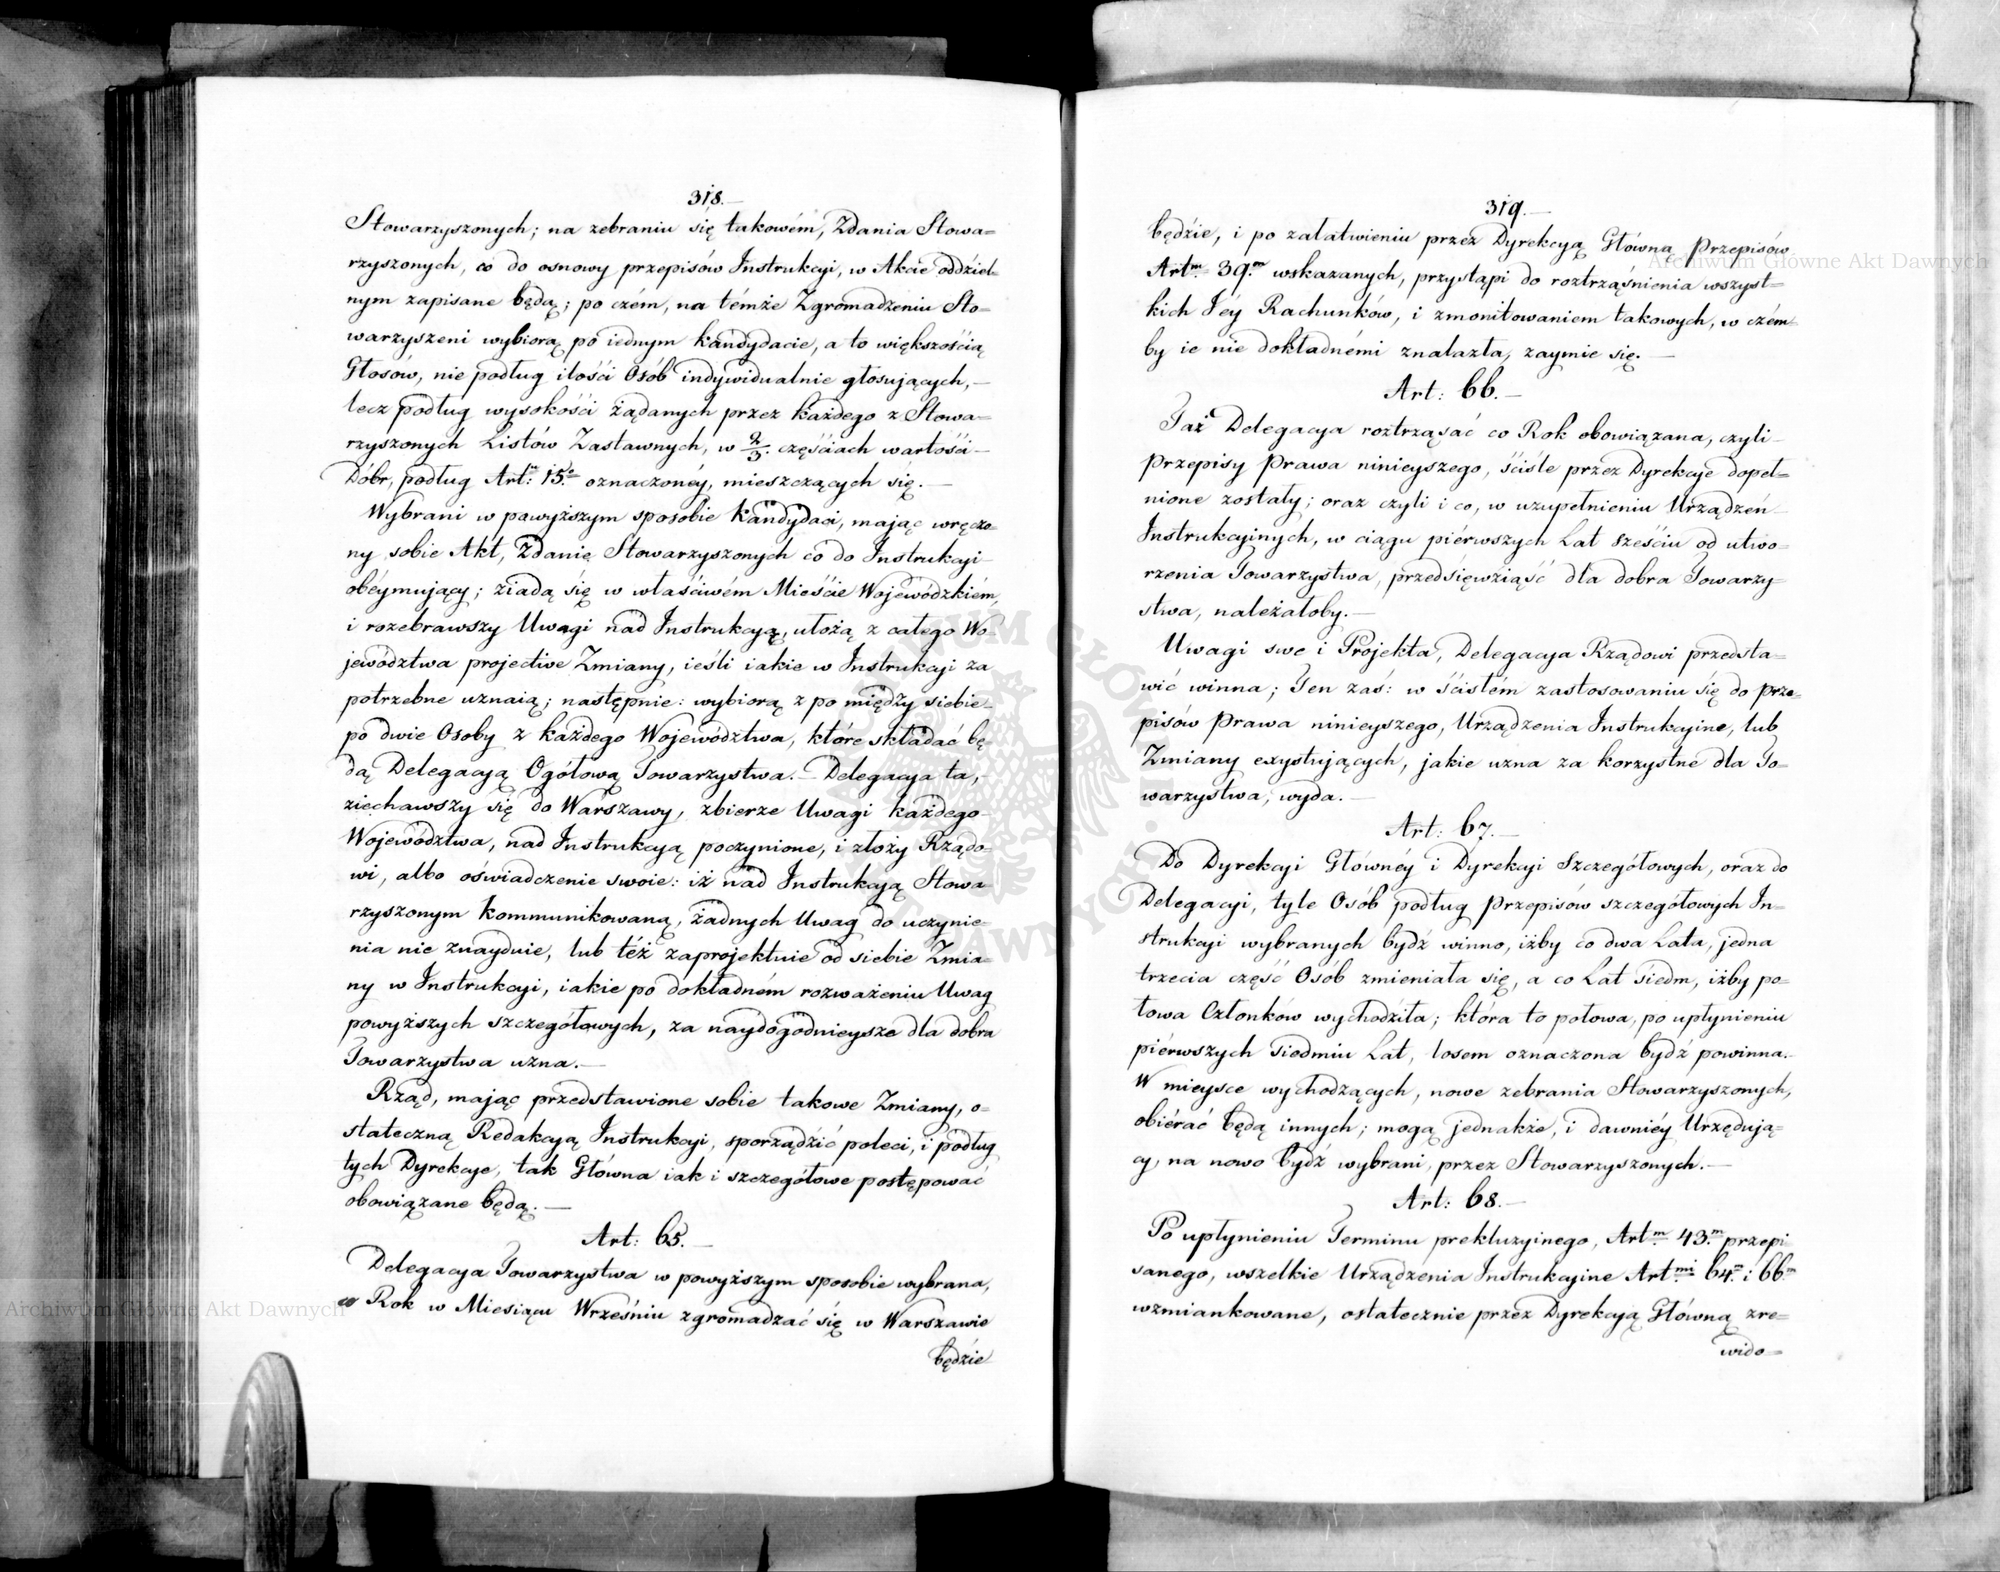 318.
Stowarzyszonych; na zebraniu się takowém, Zdania Stowa=
rzyszonych, co do osnowy przepisów Instrukcyi, w Akcie oddziel=
nym zapisane będą; po czém, na témże Zgromadzeniu Sto=
warzyszeni wybiorą po iednym kandydacie, a to większością
Głosów, nie podług ilości Osób indywidualnie głosujących,—
lecz podług wysokości żądanych przez każdego z Stowa=
rzyszonych Listów Zastawnych, w 2/3. częściach wartości—
Dóbr, podług Art: 15. oznaczonéy, mieszczących się.—
Wybrani w powyższym sposobie kandydaci, mając wręczo=
ny sobie Akt, Zdanie Stowarzyszonych co do Instrukcyi—
obéymujący; ziadą się w właściwém Mieście Wojewódzkiém,
i rozebrawszy Uwagi nad Instrukcyą, ułożą z całego Wo=
jewództwa projective Zmiany, ieśli iakie w Instrukcyi za
potrzebne uznaią; następnie: wybiorą z po między siebie—
po dwie Osoby z każdego Województwa, które składać bę
dą Delegacyą Ogółową Towarzystwa.— Delegacya ta,—
ziechawszy się do Warszawy, zbierze Uwagi każdego—
Województwa, nad Instrukcyą poczynione, i złoży Rządo=
wi, albo oświadczenie swoie: iż nad Instrukcyą Stowa
rzyszonym kommunikowaną, żadnych Uwag do uczynie=
nia nie znayduie, lub téż zaprojektuie od siebie Zmia=
ny w Instrukcyi, iakie po dokładném rozważeniu Uwag
powyższych szczegółowych, za naydogodnieysze dla dobra
Towarzystwa uzna.—
Rząd, mając przedstawione sobie takowe Zmiany, o=
stateczną Redakcyą Instrukcyi, sporządzić poleci, i podług
tych Dyrekcye, tak Główna iak i szczegółowe postępować
obowiązane będą.—
Art: 65.—
Delegacya Towarzystwa w powyższym sposobie wybrana,
co Rok w Miesiącu Wrześniu zgromadzać się w Warszawie
będzie
319.—
będzie, i po załatwieniu przez Dyrekcyą Główną Przepisów
Artm. 39.m wskazanych, przystąpi do roztrząśnienia wszyst=
kich Jéy Rachunków, i zmonitowaniem takowych, w czém=
by ie nie dokładnémi znalazła, zaymie się.—
Art: 66.—
Taż Delegacya roztrząsać co Rok obowiązana, czyli—
Przepisy Prawa ninieyszego, ściśle przez Dyrekcye dopeł=
nione zostały; oraz czyli i co, w uzupełnieniu Urządzeń—
Instrukcyinych, w ciągu piérwszych Lat sześciu od utwo=
rzenia Towarzystwa, przedsięwziąść dla dobra Towarzy=
stwa, należałoby.—
Uwagi swe i Projekta, Delegacya Rządowi przedsta=
wić winna; Ten zaś: w ścisłém zastosowaniu się do Prze=
pisów Prawa ninieyszego, Urządzenia Instrukcyine, lub
Zmiany exystujących, jakie uzna za korzystne dla To=
warzystwa, wyda.—
Art: 67.—
Do Dyrekcyi Głównéy i Dyrekcyi Szczegółowych, oraz do
Delegacyi, tyle Osób podług Przepisów szczegółowych In=
strukcyi wybranych bydź winno, iżby co dwa Lata, jedna
trzecia część Osób zmieniała się, a co Lat siedm, iżby po=
łowa Członków wychodziła; która to połowa, po upłynieniu
piérwszych siedmiu Lat, losem oznaczona bydź powinna.—
W mieysce wychodzących, nowe zebrania Stowarzyszonych,
obiérać będą innych; mogą jednakże, i dawniéy Urzędują=
cy, na nowo bydź wybrani, przez Stowarzyszonych.—
Art: 68.—
Po upłynieniu Terminu prekluzyinego, Artm. 43.m przepi
sanego, wszelkie Urządzenia Instrukcyine Artmi. 64.m i 66.m
wzmiankowane, ostatecznie przez Dyrekcyą Główną zre=
wido=
Archiwum Główne Akt Dawnych
Archiwum Główne Akt Dawnych
ARCHIWUM GŁÓWNE AKT DAWNYCH